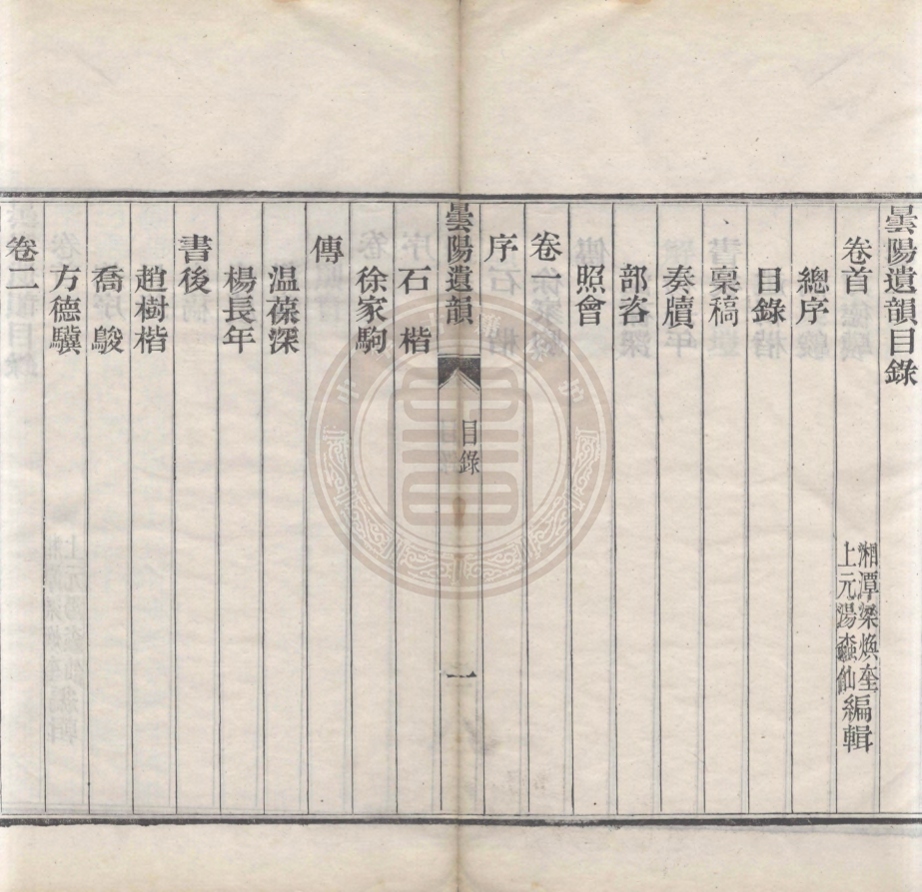 曇陽遺韻目錄
卷首
湘潭梁煥奎
上元湯
編輯
總序
目錄
稟稿
奏牘
部咨
照會
卷一
序
曇陽遺韻
目錄
一
石楷
徐家駒
傳
温葆深
楊長年
書後
趙樹楷
喬駿
方德驥
卷二